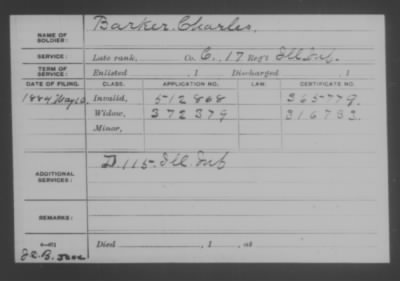 NAME OF SOLDIER: Barker, Charles.
SERVICE: Late rank, Co. C., 17 Reg't Ill Inf.
TERM OF SERVICE: Enlisted , 1 Discharged , 1
DATE OF FILING. CLASS. APPLICATION NO. LAW. CERTIFICATE NO.
1884 May 6, Invalid, 512868 365779.
Widow, 372379 316783.
Minor,
ADDITIONAL SERVICES: D. 115. Ill. Inf
REMARKS:
Died , 1 , at